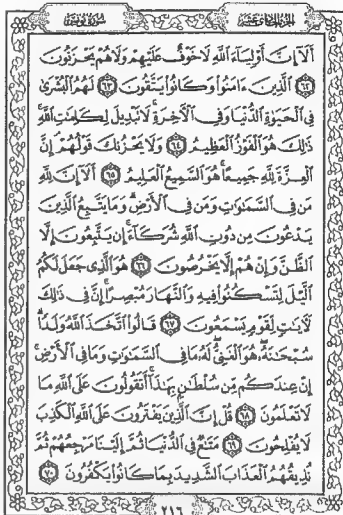 الجزء الحادي عشر سورة يونس
أَلَآ إِنَّ أَوْلِيَآءَ ٱللَّهِ لَا خَوْفٌ عَلَيْهِمْ وَلَا هُمْ يَحْزَنُونَ
﴿٦٢﴾ ٱلَّذِينَ ءَامَنُوا۟ وَكَانُوا۟ يَتَّقُونَ ﴿٦٣﴾ لَهُمُ ٱلْبُشْرَىٰ
فِى ٱلْحَيَوٰةِ ٱلدُّنْيَا وَفِى ٱلْءَاخِرَةِ ۚ لَا تَبْدِيلَ لِكَلِمَـٰتِ ٱللَّهِ ۚ
ذَٰلِكَ هُوَ ٱلْفَوْزُ ٱلْعَظِيمُ ﴿٦٤﴾ وَلَا يَحْزُنكَ قَوْلُهُمْ ۘ إِنَّ
ٱلْعِزَّةَ لِلَّهِ جَمِيعًا ۚ هُوَ ٱلسَّمِيعُ ٱلْعَلِيمُ ﴿٦٥﴾ أَلَآ إِنَّ لِلَّهِ
مَن فِى ٱلسَّمَـٰوَٰتِ وَمَن فِى ٱلْأَرْضِ ۗ وَمَا يَتَّبِعُ ٱلَّذِينَ
يَدْعُونَ مِن دُونِ ٱللَّهِ شُرَكَآءَ ۚ إِن يَتَّبِعُونَ إِلَّا
ٱلظَّنَّ وَإِنْ هُمْ إِلَّا يَخْرُصُونَ ﴿٦٦﴾ هُوَ ٱلَّذِى جَعَلَ لَكُمُ
ٱلَّيْلَ لِتَسْكُنُوا۟ فِيهِ وَٱلنَّهَارَ مُبْصِرًا ۚ إِنَّ فِى ذَٰلِكَ
لَـَٔايَـٰتٍ لِّقَوْمٍ يَسْمَعُونَ ﴿٦٧﴾ قَالُوا۟ ٱتَّخَذَ ٱللَّهُ وَلَدًا ۗ
سُبْحَـٰنَهُۥ ۖ هُوَ ٱلْغَنِىُّ ۖ لَهُۥ مَا فِى ٱلسَّمَـٰوَٰتِ وَمَا فِى ٱلْأَرْضِ ۚ
إِنْ عِندَكُم مِّن سُلْطَـٰنٍۭ بِهَـٰذَآ ۚ أَتَقُولُونَ عَلَى ٱللَّهِ مَا
لَا تَعْلَمُونَ ﴿٦٨﴾ قُلْ إِنَّ ٱلَّذِينَ يَفْتَرُونَ عَلَى ٱللَّهِ ٱلْكَذِبَ
لَا يُفْلِحُونَ ﴿٦٩﴾ مَتَـٰعٌ فِى ٱلدُّنْيَا ثُمَّ إِلَيْنَا مَرْجِعُهُمْ ثُمَّ
نُذِيقُهُمُ ٱلْعَذَابَ ٱلشَّدِيدَ بِمَا كَانُوا۟ يَكْفُرُونَ ﴿٧٠﴾
٢١٦